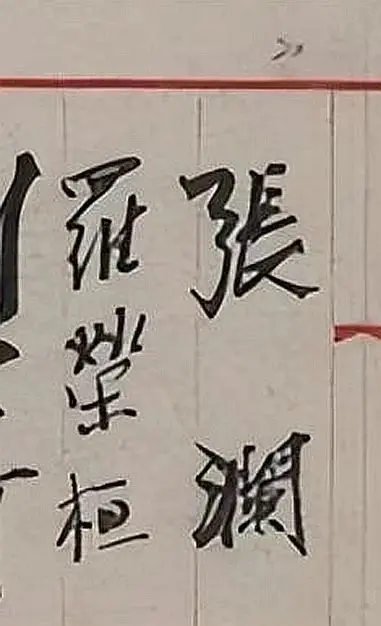 張瀾
羅榮桓